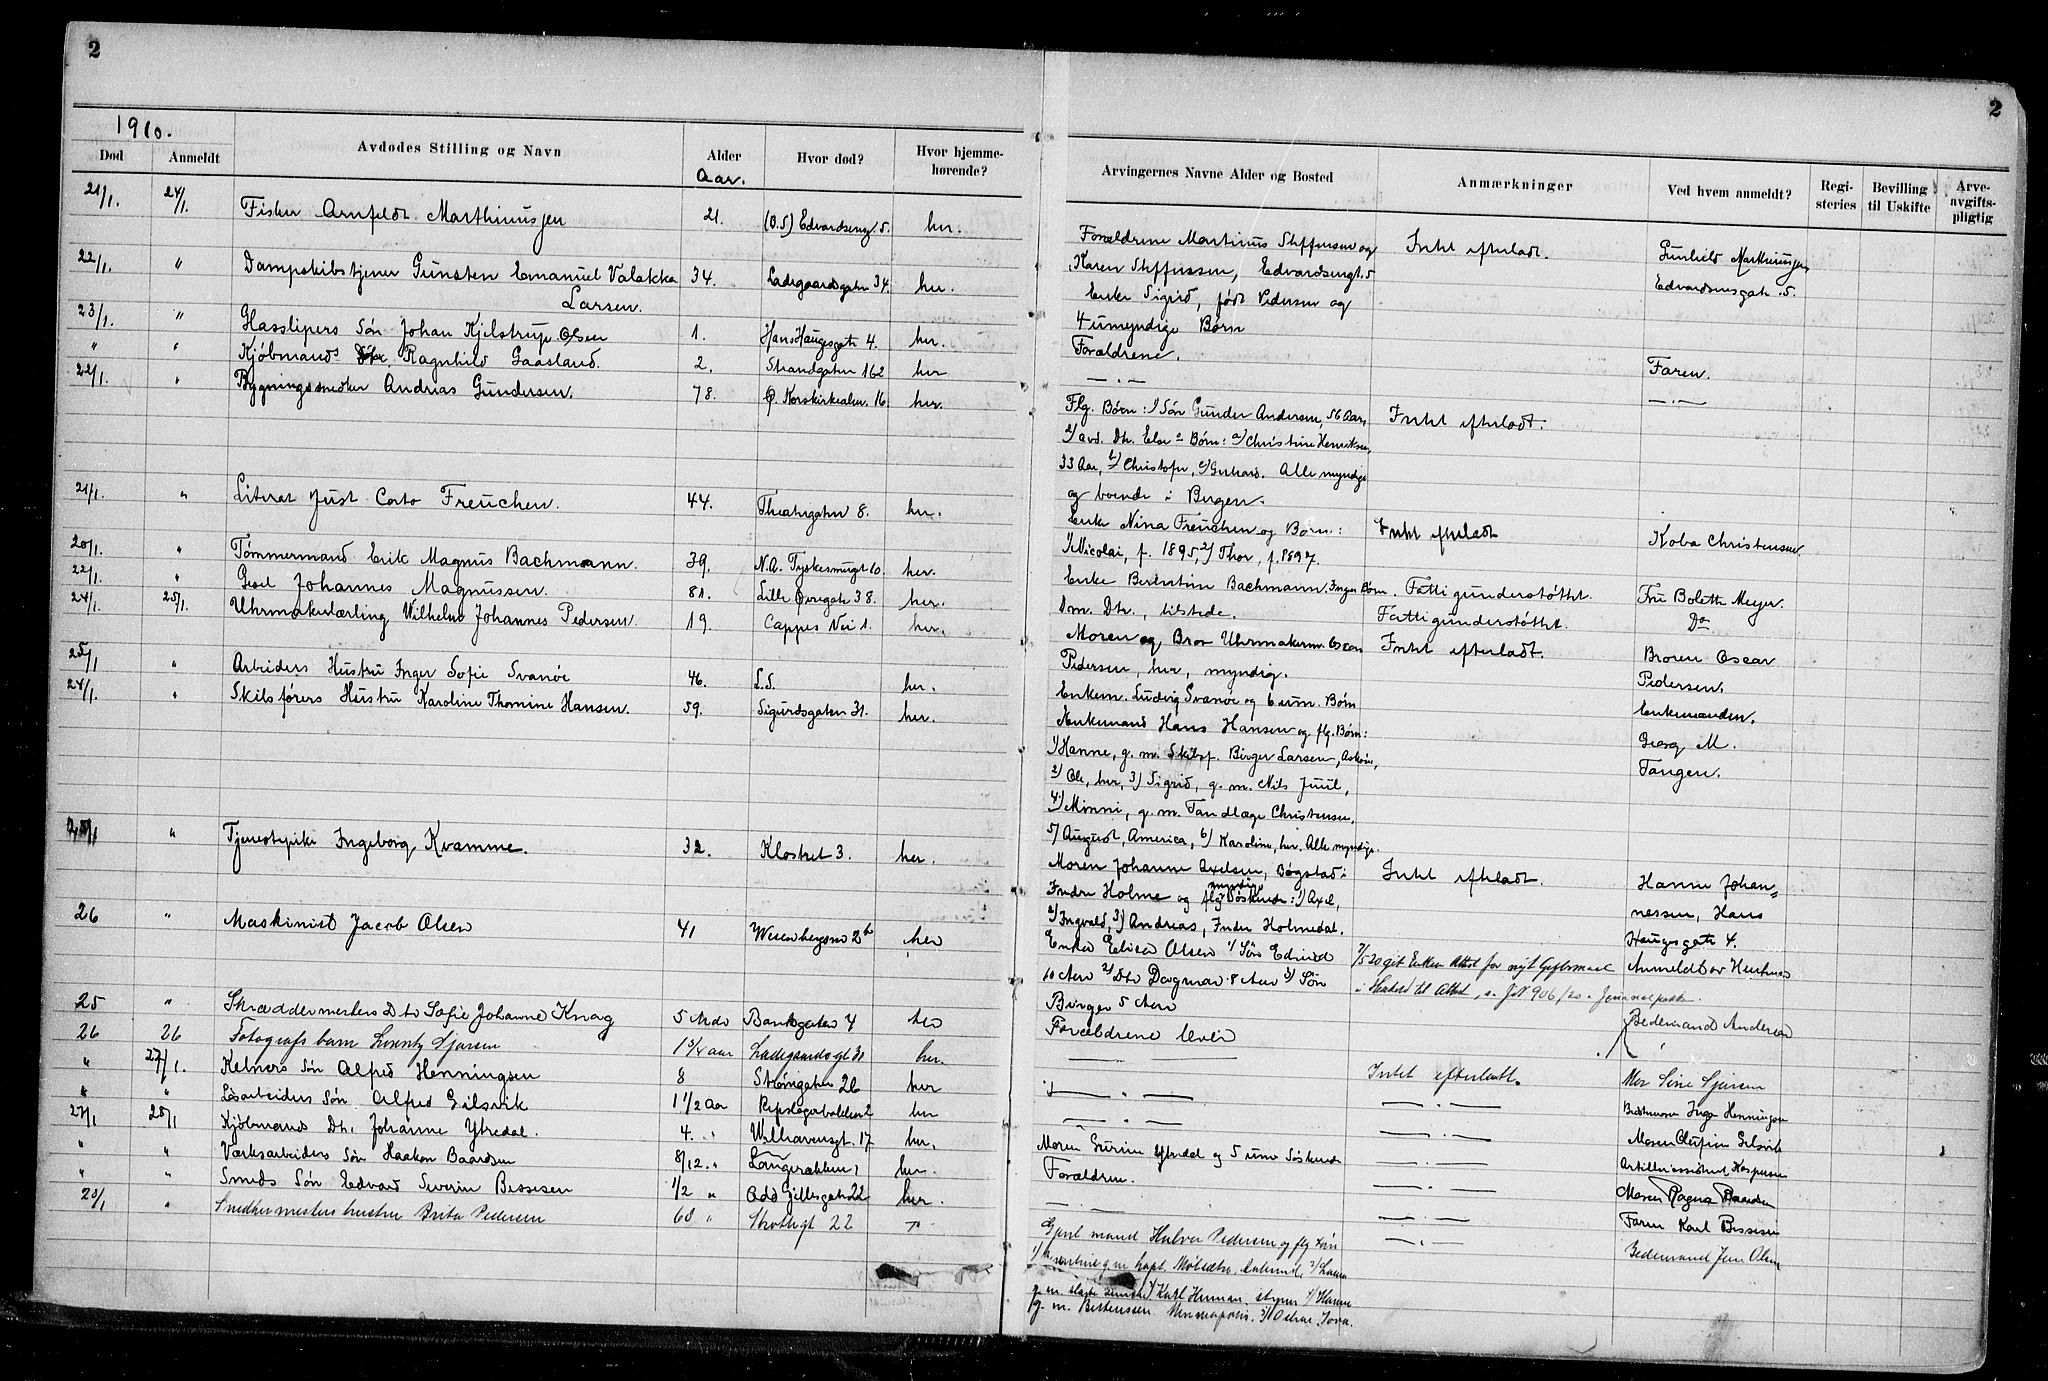 2
1910.
Død Anmeldt Avdødes Stilling og Navn Alder Aar. Hvor død? Hvor hjemme-hørende?
21/1. 24/1. Fisker Arnfeldt Marthinusjen 21. (O.S) Edvardseng. 5. her.
22/1. " Dampskibstjener Gunsten Emanuel Valakka 34. Ladegaardsgaten 34. her.
Larsen.
23/1. " Glasslipers Søn Johan Kjelstrup Olsen 1. Hans Haugesgate 4. her.
" " Kjøbmands Ragnhild Gaasland. 2. Strandgaten 162 her
22/1. " Bygningssnedker Andreas Gundersen. 78. Ø. Korskirkealm. 16. her.
21/1. " Literat Just Corto Freuchen. 44. Theatergaten 8. her.
20/1. " Tømmermand Erik Magnus Bachmann. 39. N.A. Tyskesmugt 10. her.
22/1. " Gsel Johannes Magnussen. 81. Lille Øvregate 38. her.
24/1. 25/1. Uhrmakerlærling Wilhelm Johannes Pedersen. 19. Cappes Vei 1. her.
25/1 " Arbeiders Hustru Inger Sofie Svanøe 46. L.S. her.
24/1. " Skibsførers Hustru Karoline Thomine Hansen. 59. Sigurdsgaten 31. her.
" Tjenestepike Ingeborg Kvamme. 32. Klostret 3. her.
26 " Maskinist Jacob Olsen 41 her
25 " Skræddermesters Dtr Sofie Johanne Knag 5 Mdr Bankgaten 4 her
26 26 Fotografs barn Sjørsen 1 3/4 aar Ladegaardsgt 31 her.
" 27/1. Kelners Søn Alfred Henningsen 8 Strømgaten 26 her
" " Løsarbeiders Søn Alfred Gilsvik 1 1/2 Aar Repslagerbakken 2 her
27/1 28/1 Kjøbmands Dtr. Johanne Ytredal. 4. " Welhavensgt. 17 her.
" " Værksarbeiders Søn Haakon Baardsen 8/12. " Langerækken 1 her.
" " Smeds Søn Edvard Severin Bessesen 1/2 " Odd Gillesgaten 22 her.
28/1 " Snedkermesters hustru Brita Pedersen 60 " Skottegt 22 "
2
Arvingernes Navne Alder og Bosted Anmærkninger Ved hvem anmeldt? Regi-steries Bevilling til Uskifte Arve-avgifts-pligtig
Forældrene Martinus Steffensen og Intet efterladt. Gunhild Marthinusjen
Karen Steffensen, Edvardsengt. 5 Edvardsensgate. 5.
Enke Sigrid, født Pedersen og
4 umyndige Børn
Forældrene. Faren.
— " — — " —
Flg. Børn: 1) Søn Gunder Andersen, 56 Aar, Intet efterladt.
2) avd. Dtr. Else s Børn: a) Christine Henriksen,
33 Aar, b) Christofer, c) Gerhard. Alle myndige
og boende i Bergen.
Enke Nina Freuchen og Børn: Intet efterladt Koba Christensen
1) Nicolai, f. 1895, 2) Thor, f. 1897.
Enke Berentine Bachmann. Ingen Børn. Fattigunderstøttet. Fru Bolette Meyer.
1 m. Dtr., tilstede. Fattigunderstøttet. Do
Moren og Bror Uhrmakerm. Oscar Intet efterladt. Broren Oscar
Pedersen, her, myndig. Pedersen.
Enkem. Ludvig Svanøe og 6 um. Børn Enkemanden.
Enkemand Hans Hansen og flg. Børn: Georg M.
1) Hanne, g. m. Skibsf. Birger Larsen, Askøen, Tangen.
2) Ole, her, 3) Sigrid, g. m. Nils Juul,
4) Minni, g. m. Tandlæge Christensen,
5) August, America, 6) Karoline, her. Alle myndige.
Moren Johanne Axelsen, Bøgstad i Intet efterladt. Hanne Johan=
Indre Holme og flg. myndige Søskende: 1) Axel, nessen, Hans
2) Ingvald, 3) Andreas, Indre Holmedal. Haugesgate 4.
Enke Elisa Olsen 1/ Søn Edvind 7/5 20 git Enken Attest for nyt Giftermaal Anmeldt av Hustruen
10 Aar 2/ Dtr Dagmar 8 Aar 3/ Søn til Attest, s. J.N 906/20
Birger 5 Aar Bedemand Andersen
Forældrene lever
— " — Intet efterladt. Mor Sine Sjørsen
— " — — " — Bedstemoren Inga Henningsen
— " — — " — Moren Olufine Gilsvik
Moren Gurine Ytredal og 5 um Søskende — " — Artilleriassistent Kaspersen
Forældren. — " — Moren Ragna Baardsen
— " — — " — Faren Karl Bessesen
Gjenl mand Halvor Pedersen og flg — " — Bedemand Jens Olsen
g. m. kapt. 2/ Laura
g. m. Karl Herman, 4/ Hanna
g. m. Berentsen Minneapolis. Iowa.